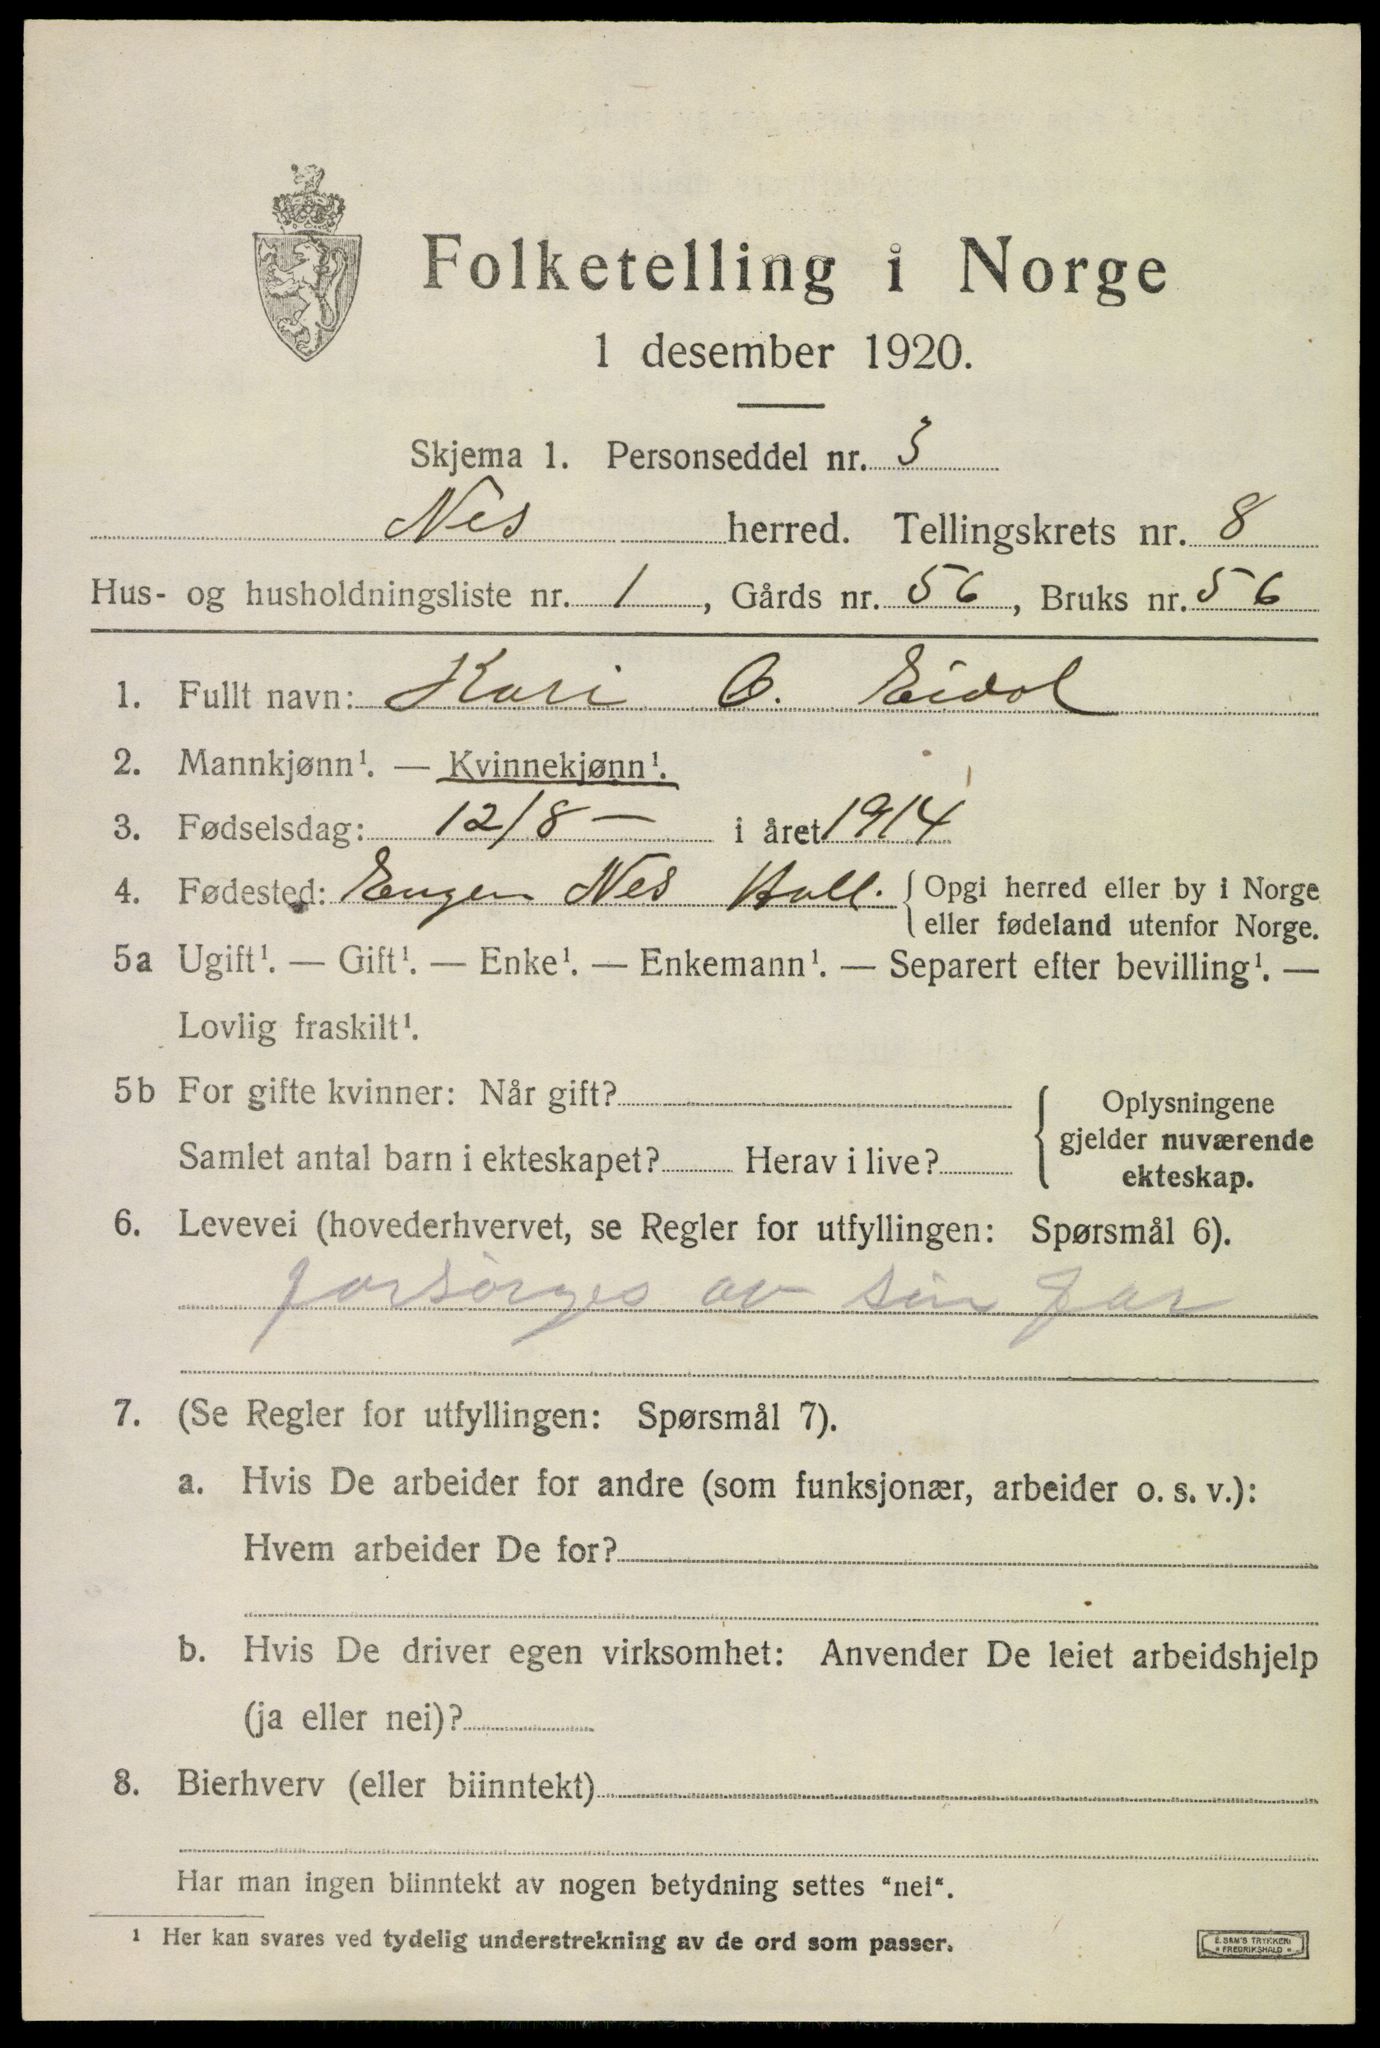 Folketelling i Norge
1 desember 1920.
Skjema 1. Personseddel nr. 3
Nes herred. Tellingskrets nr. 8
Hus- og husholdningsliste nr. 1, Gårds nr. 56, Bruks nr. 56
1. Fullt navn: Kari O. Eidal
2. Mannkjønn¹. — Kvinnekjønn¹.
3. Fødselsdag: 12/8 — i året 1914
4. Fødested: Nes Hall. Opgi herred eller by i Norge
eller fødeland utenfor Norge.
5a Ugift¹. — Gift¹. — Enke¹. — Enkemann¹. — Separert efter bevilling¹. —
Lovlig fraskilt¹.
5b For gifte kvinner: Når gift?
Samlet antal barn i ekteskapet? Herav i live?
Oplysningene
gjelder nuværende
ekteskap.
6. Levevei (hovederhvervet, se Regler for utfyllingen: Spørsmål 6).
forsørges av sin far
7. (Se Regler for utfyllingen: Spørsmål 7).
a. Hvis De arbeider for andre (som funksjonær, arbeider o. s. v.):
Hvem arbeider De for?
b. Hvis De driver egen virksomhet: Anvender De leiet arbeidshjelp
(ja eller nei)?
8. Bierhverv (eller biinntekt)
Har man ingen biinntekt av nogen betydning settes "nei".
¹ Her kan svares ved tydelig understrekning av de ord som passer.
E. SEM'S TRYKKERI
FREDRIKSHALD